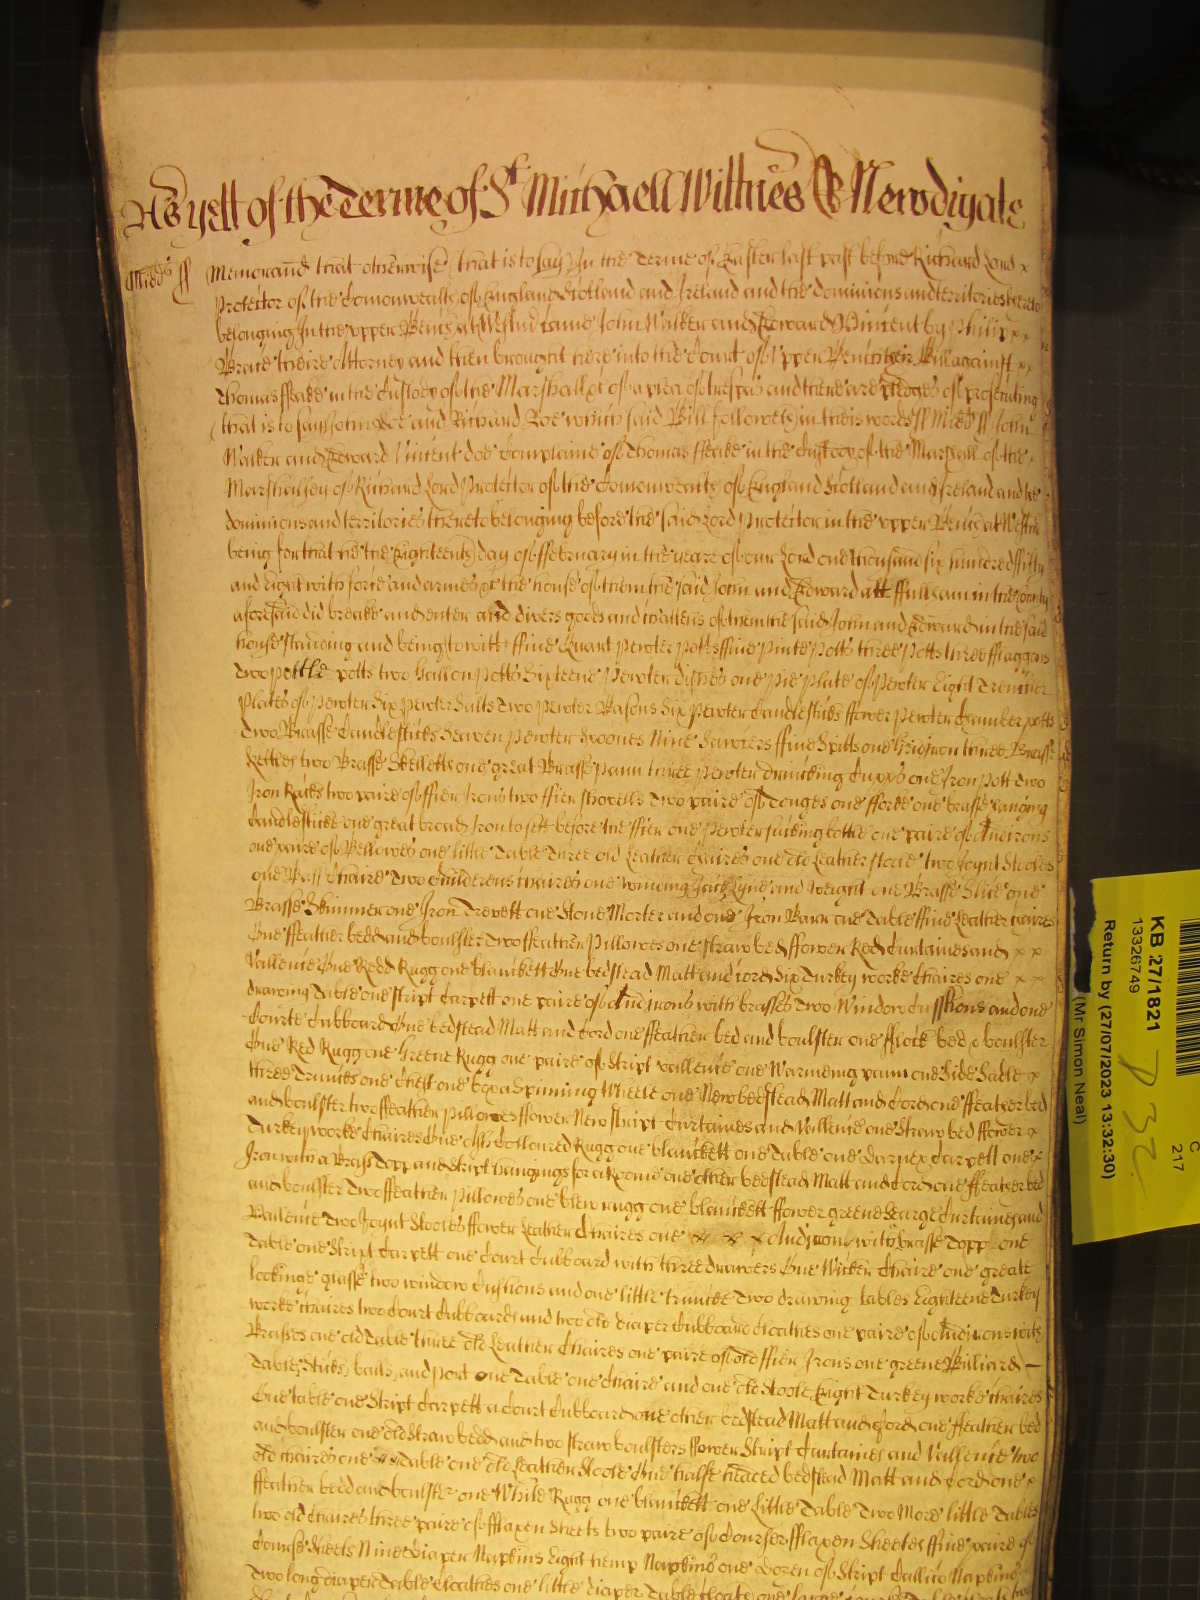 As yett of the Terme of St Michaell Wittnes R Newdigate
Midds ss Memorand that otherwise (that is to say) In the Terme of Easter last past before Richard Lord x
Protector of the Comonwealth of England Scotland and Ireland and the dominions and territories thereto
belonging In the upper Bench at Westmr came John Walker and Edward Vincent by Philip x x
theire Attorney and then brought here into the Court of Upper Bench their Bill against x x
Thomas ffeake in the Custody of the Marshall &c of a plea of trespas and there are pledges of prosecuting
(that is to say) John Doe and Richard Roe which said Bill followeth in theis words ss Midds ss John
Walker and Edward Vincent doe Complaine of Thomas ffeake in the Custody of the Marshall of the x
Marshalsey of Richard Lord Protector of the Comonwealth of England Scotland and Ireland and the
dominions and territories thereto belonging before the said Lord Protector in the upper Bench at Westmr
being for that he the Eighteenth day of ffebruary in the yeare of our Lord one thousand six hundred fifty
and Eight with force and armes &c the house of them the said John and Edward att ffulham in the County
aforesaid did breake and enter and divers goods and Cattells of them the said John and Edward in the said
house standing and being (to witt) ffive Quart Pewter Potts ffive Pinte Potts three Potts three fflaggons
Two Pottle potts two Gallon Potts Sixteene Pewter dishes one Pie Plate of Pewter Eight Trencher
Plates of Pewter Six Pewter Salts Two Pewter Basons Six Pewter Candlesticks ffower Pewter Chamber potts
Two Brasse Candlesticks Seaven Pewter Spoones Nine Sawcers ffive Spitts one Gridiron three Brasse
Kettles two Brasse Skelletts one great Brasse Pann three Pewter drincking Cupps one Iron Pott Two
Iron Racks two paire of ffier Irons two ffier shovells Two paire of Tonges one fforke one brasse hanging
Candlesticke one great broad Iron to sett before the ffier one Pewter sucking bottle one paire of Andirons
one paire of Bellowes one little Table Three old Leather Chaires one old Leather stoole two Joynt Stooles
one Chaire Two Childerens chaires one winding Jack Lyne and weight one Brasse Slice one
Brasse Skimmer one Iron Trevett one Stone Morter and one Iron Barr one Table ffive Leather chaires
One ffeather bedd and boulster Two ffeather Pillowes one straw bed ffower Red Curtaines and x x
Vallence One Redd Rugg one blanckett One bedstead Matt and cord Six Turkey worke Chaires one x x
drawing Table one stript Carpett one paire of Andirons with brasses Two Window Cusshions and one
Courte Cubboard One bedstead Matt and Cord one ffeather bed and boulster one fflock bed & boulster
One Red Rugg one Greene Rugg one paire of Stript vallence one Warmeing pann one Side Sadle x
three Truncks one Chest one box a Spinning Wheele one New bedstead Matt and Cord one ffeather bed
and boulster two ffeather pillowes ffower New stript Curtaines and Vallence one Straw bed ffower x
Turkey worke Chaires One Ash Colloured Rugg one blanckett one Table one Darnex Carpett one x
Iron with a Brass Topp and Stript hangings for a Roome one other bedstead Matt and Cord one ffeather bed
and boulster Two ffeather Pillowes one blew rugg one blanckett ffower greene Searge Curtaines and
Vallence Two Joynt Stooles ffower Leather Chaires one x x x Andiron with brasse Topp one
Table one Stript Carpett one Court Cubboard with three drawers One Wicker Chaire one greate
lookinge glasse two window Cushions and one little trunck Two drawing tables Eighteene Turkey
worke chaires two Court Cubboards and two old diaper Cubboard Cloathes one paire of Andirons with
Brasses one old Table three old Leather Chaires one paire of old ffier Irons one greene Billiard
Table, Sticks, balls, and Port one Table one Chaire and one old Stoole Eight Turkey worke chaires
One table one Stript Carpett a Court Cubboard one other bedstead Matt and Cord one ffeather bed
and boulster one old Straw bedd and two straw boulsters ffower Stript Curtaines and Vallence two
old chaires one Table one old Leather Stoole One halfe headed bedstead Matt and Cord one x
ffeather bedd and boulster one White Rugg one blanckett one Little Table Two More little Tables
two old Chaires three paire of fflaxen Sheets two paire of Courser fflaxen Sheetes ffive paire of
Course Sheets Nine diaper Napkins Eight hemp Napkins one dozen of Stript Callico Napkins
Two long diaper Table Cloathes one little diaper Table Cloath one large
KB 27/1821
13326749
Return by (27/07/2023 13:32:30)
(Mr Simon Neal)
C
217
P 32